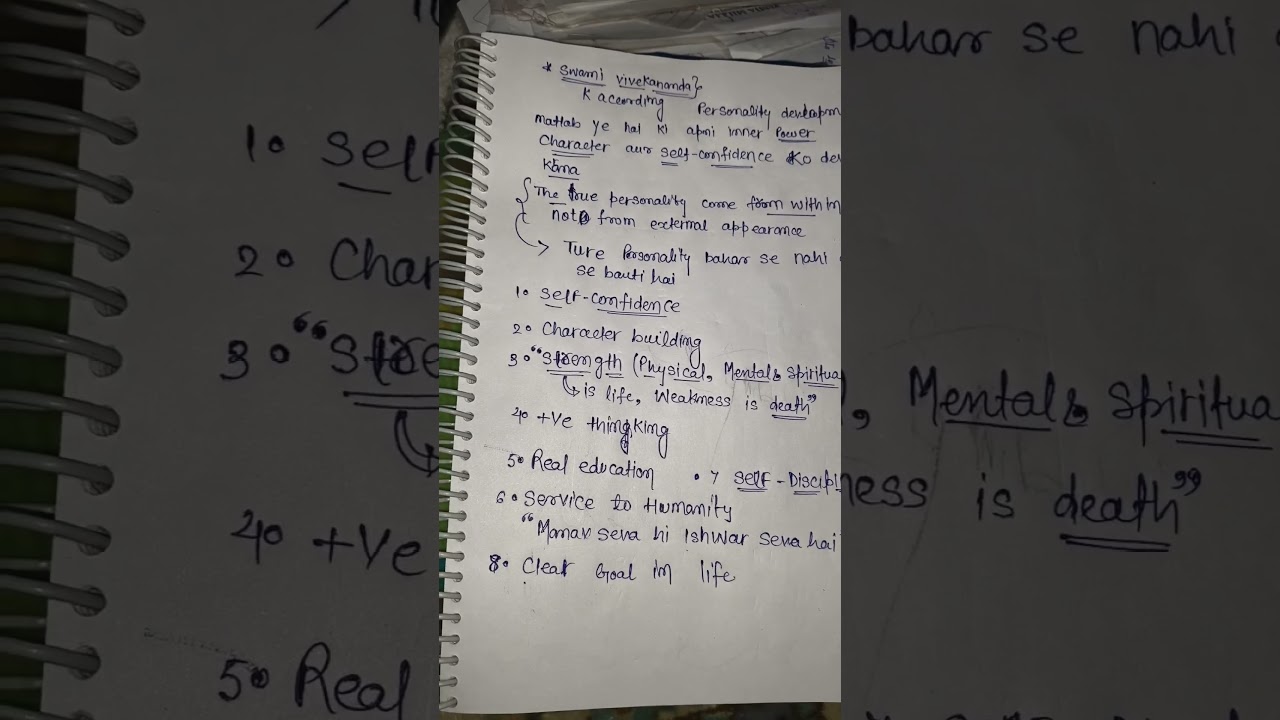 * Swami Vivekananda}
K according Personality devlopm
matlab ye hai ki apni inner Power
Character aur self-confidence Ko de
Krna
The true personality come from within
not from external appearance
Ture Personality bahar se nahi
se banti hai
1. Self-confidence
2. Character building
3. "Strength (Physical, Mental & Spiritua
is life, Weakness is death"
4. +Ve thingking
5. Real education • 7 Self-Discipli
6. Service to Humanity
"Manav seva hi Ishwar seva hai"
8. Clear Goal in life
bahar se nahi
1. Self
2. Char
3. "Stre
4. +Ve
5. Real
, Mental & Spiritua
ness is death"